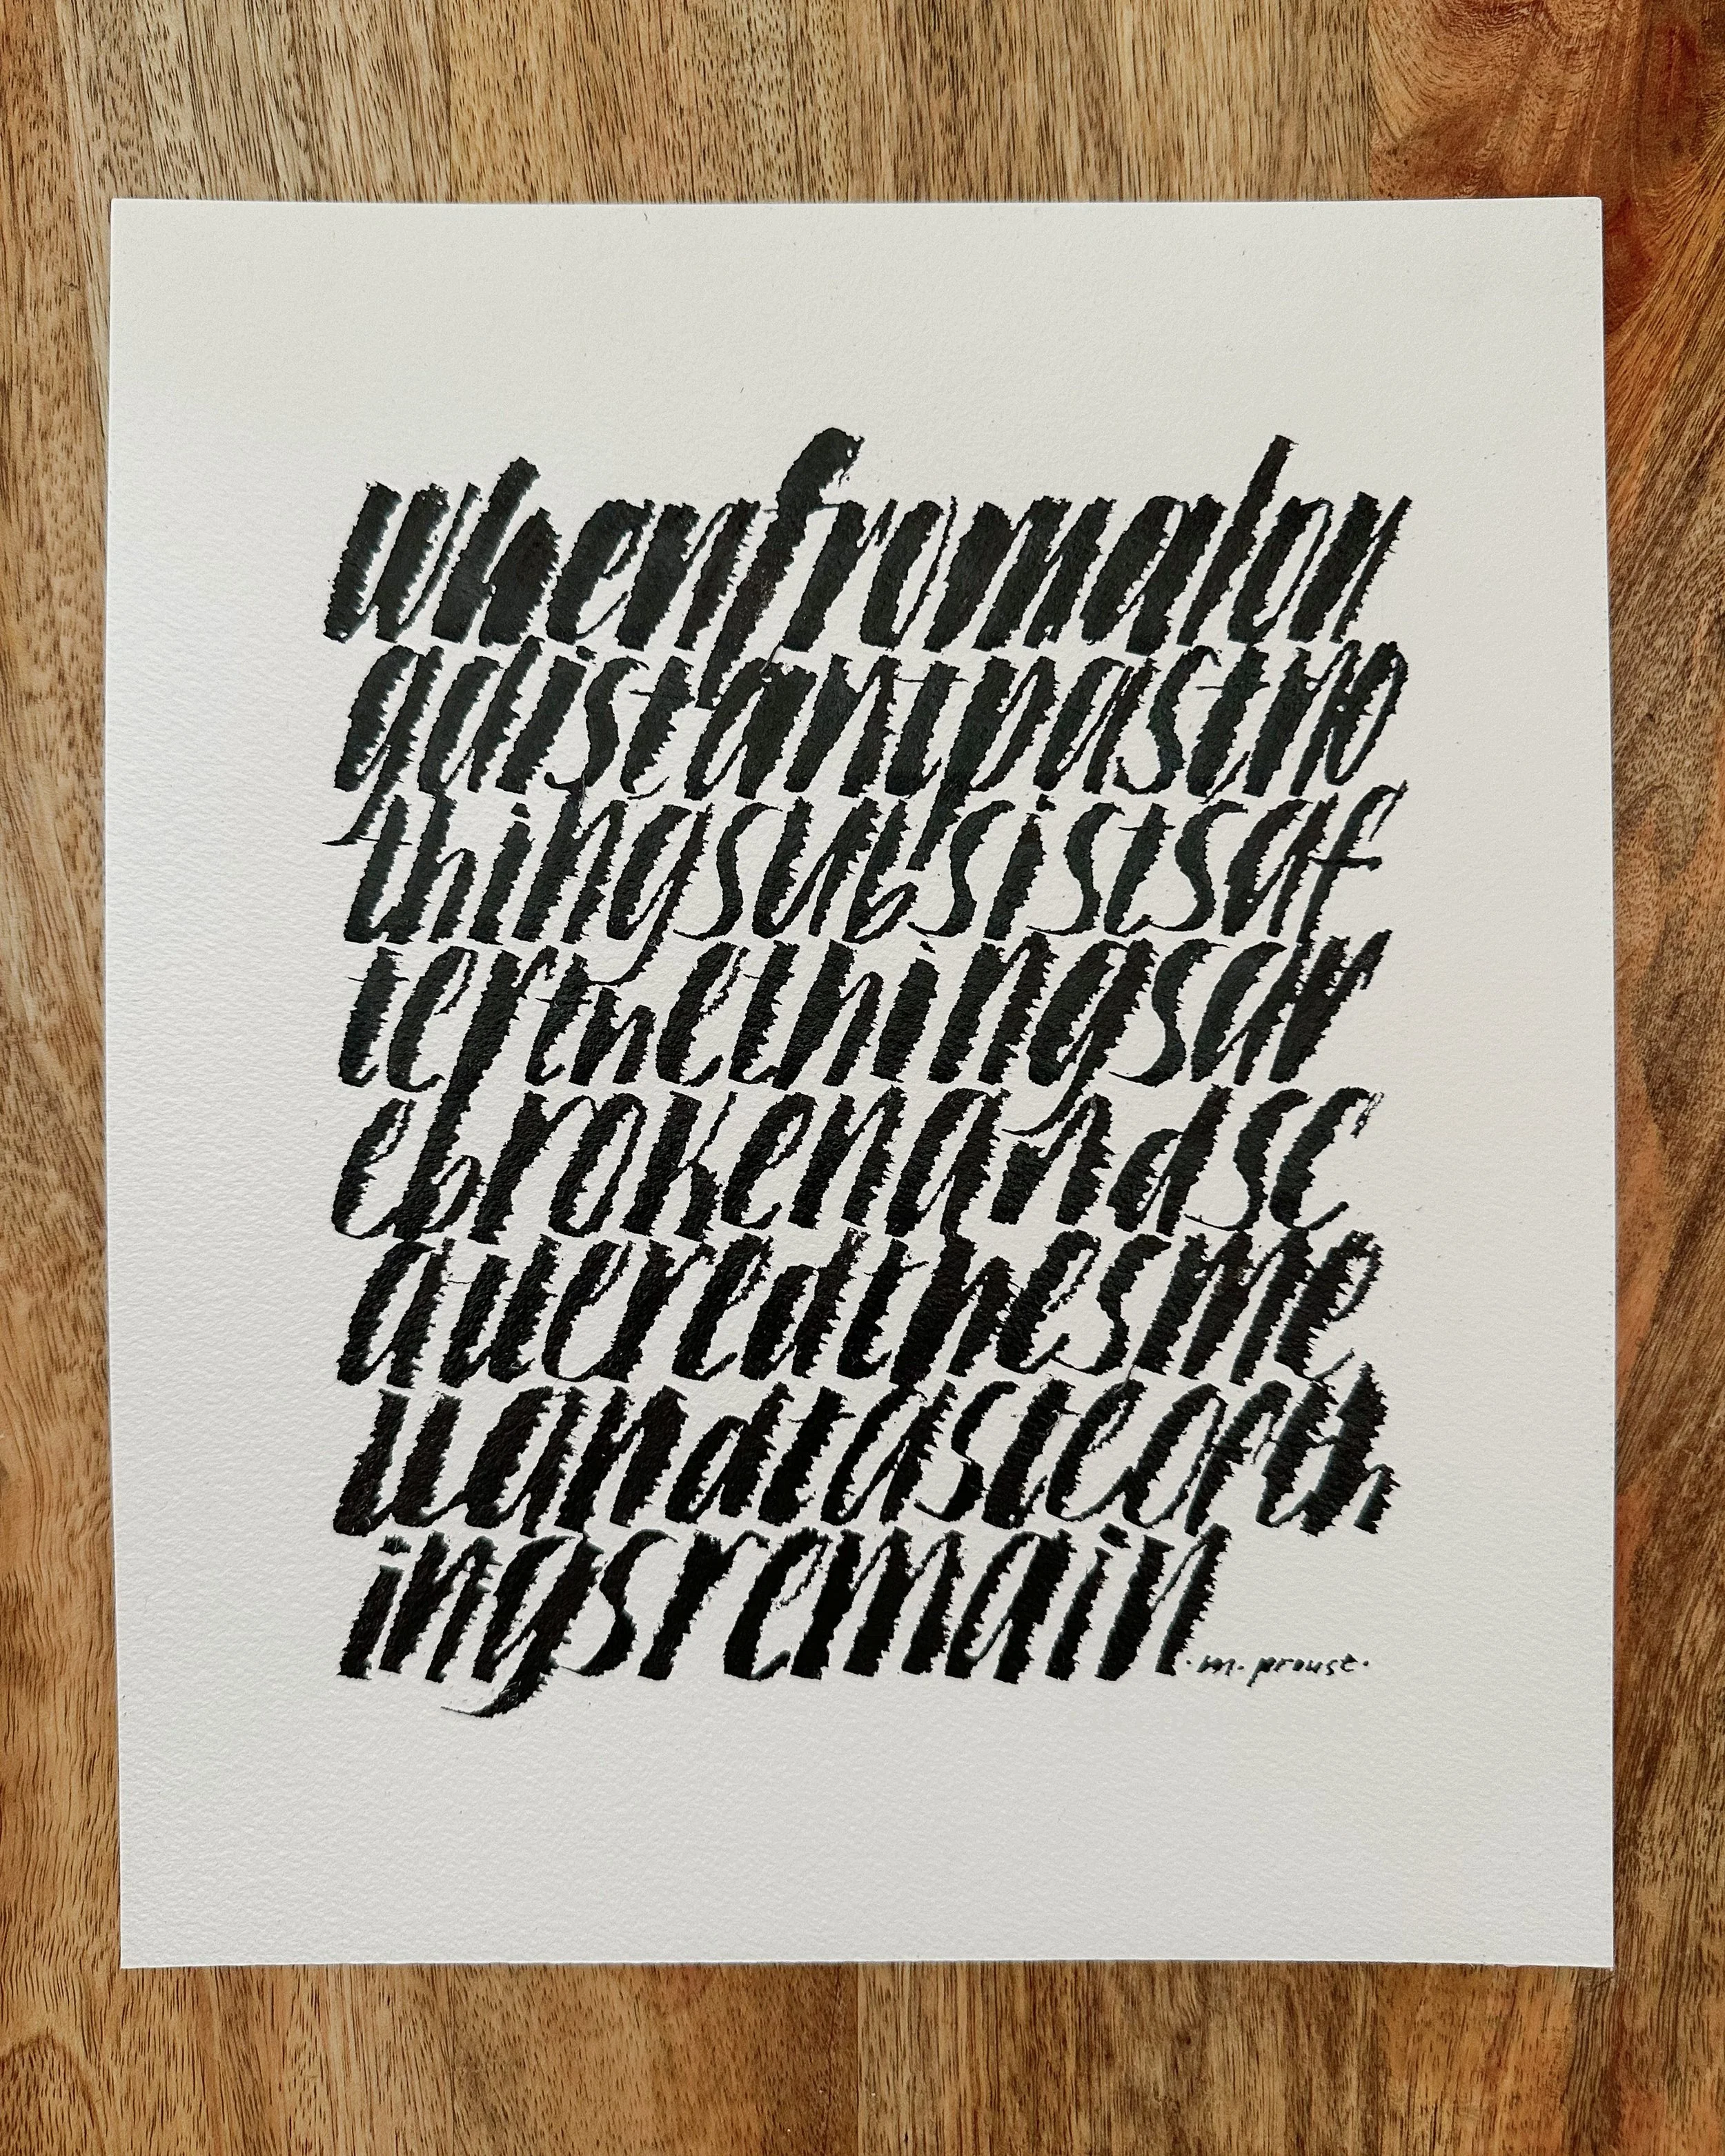 whenfromalon
gdistantpastno
thingsubsistsaf
terthethingsar
ebrokenandsc
atteredthesme
llandtasteofth
ingsremain
·m. proust·